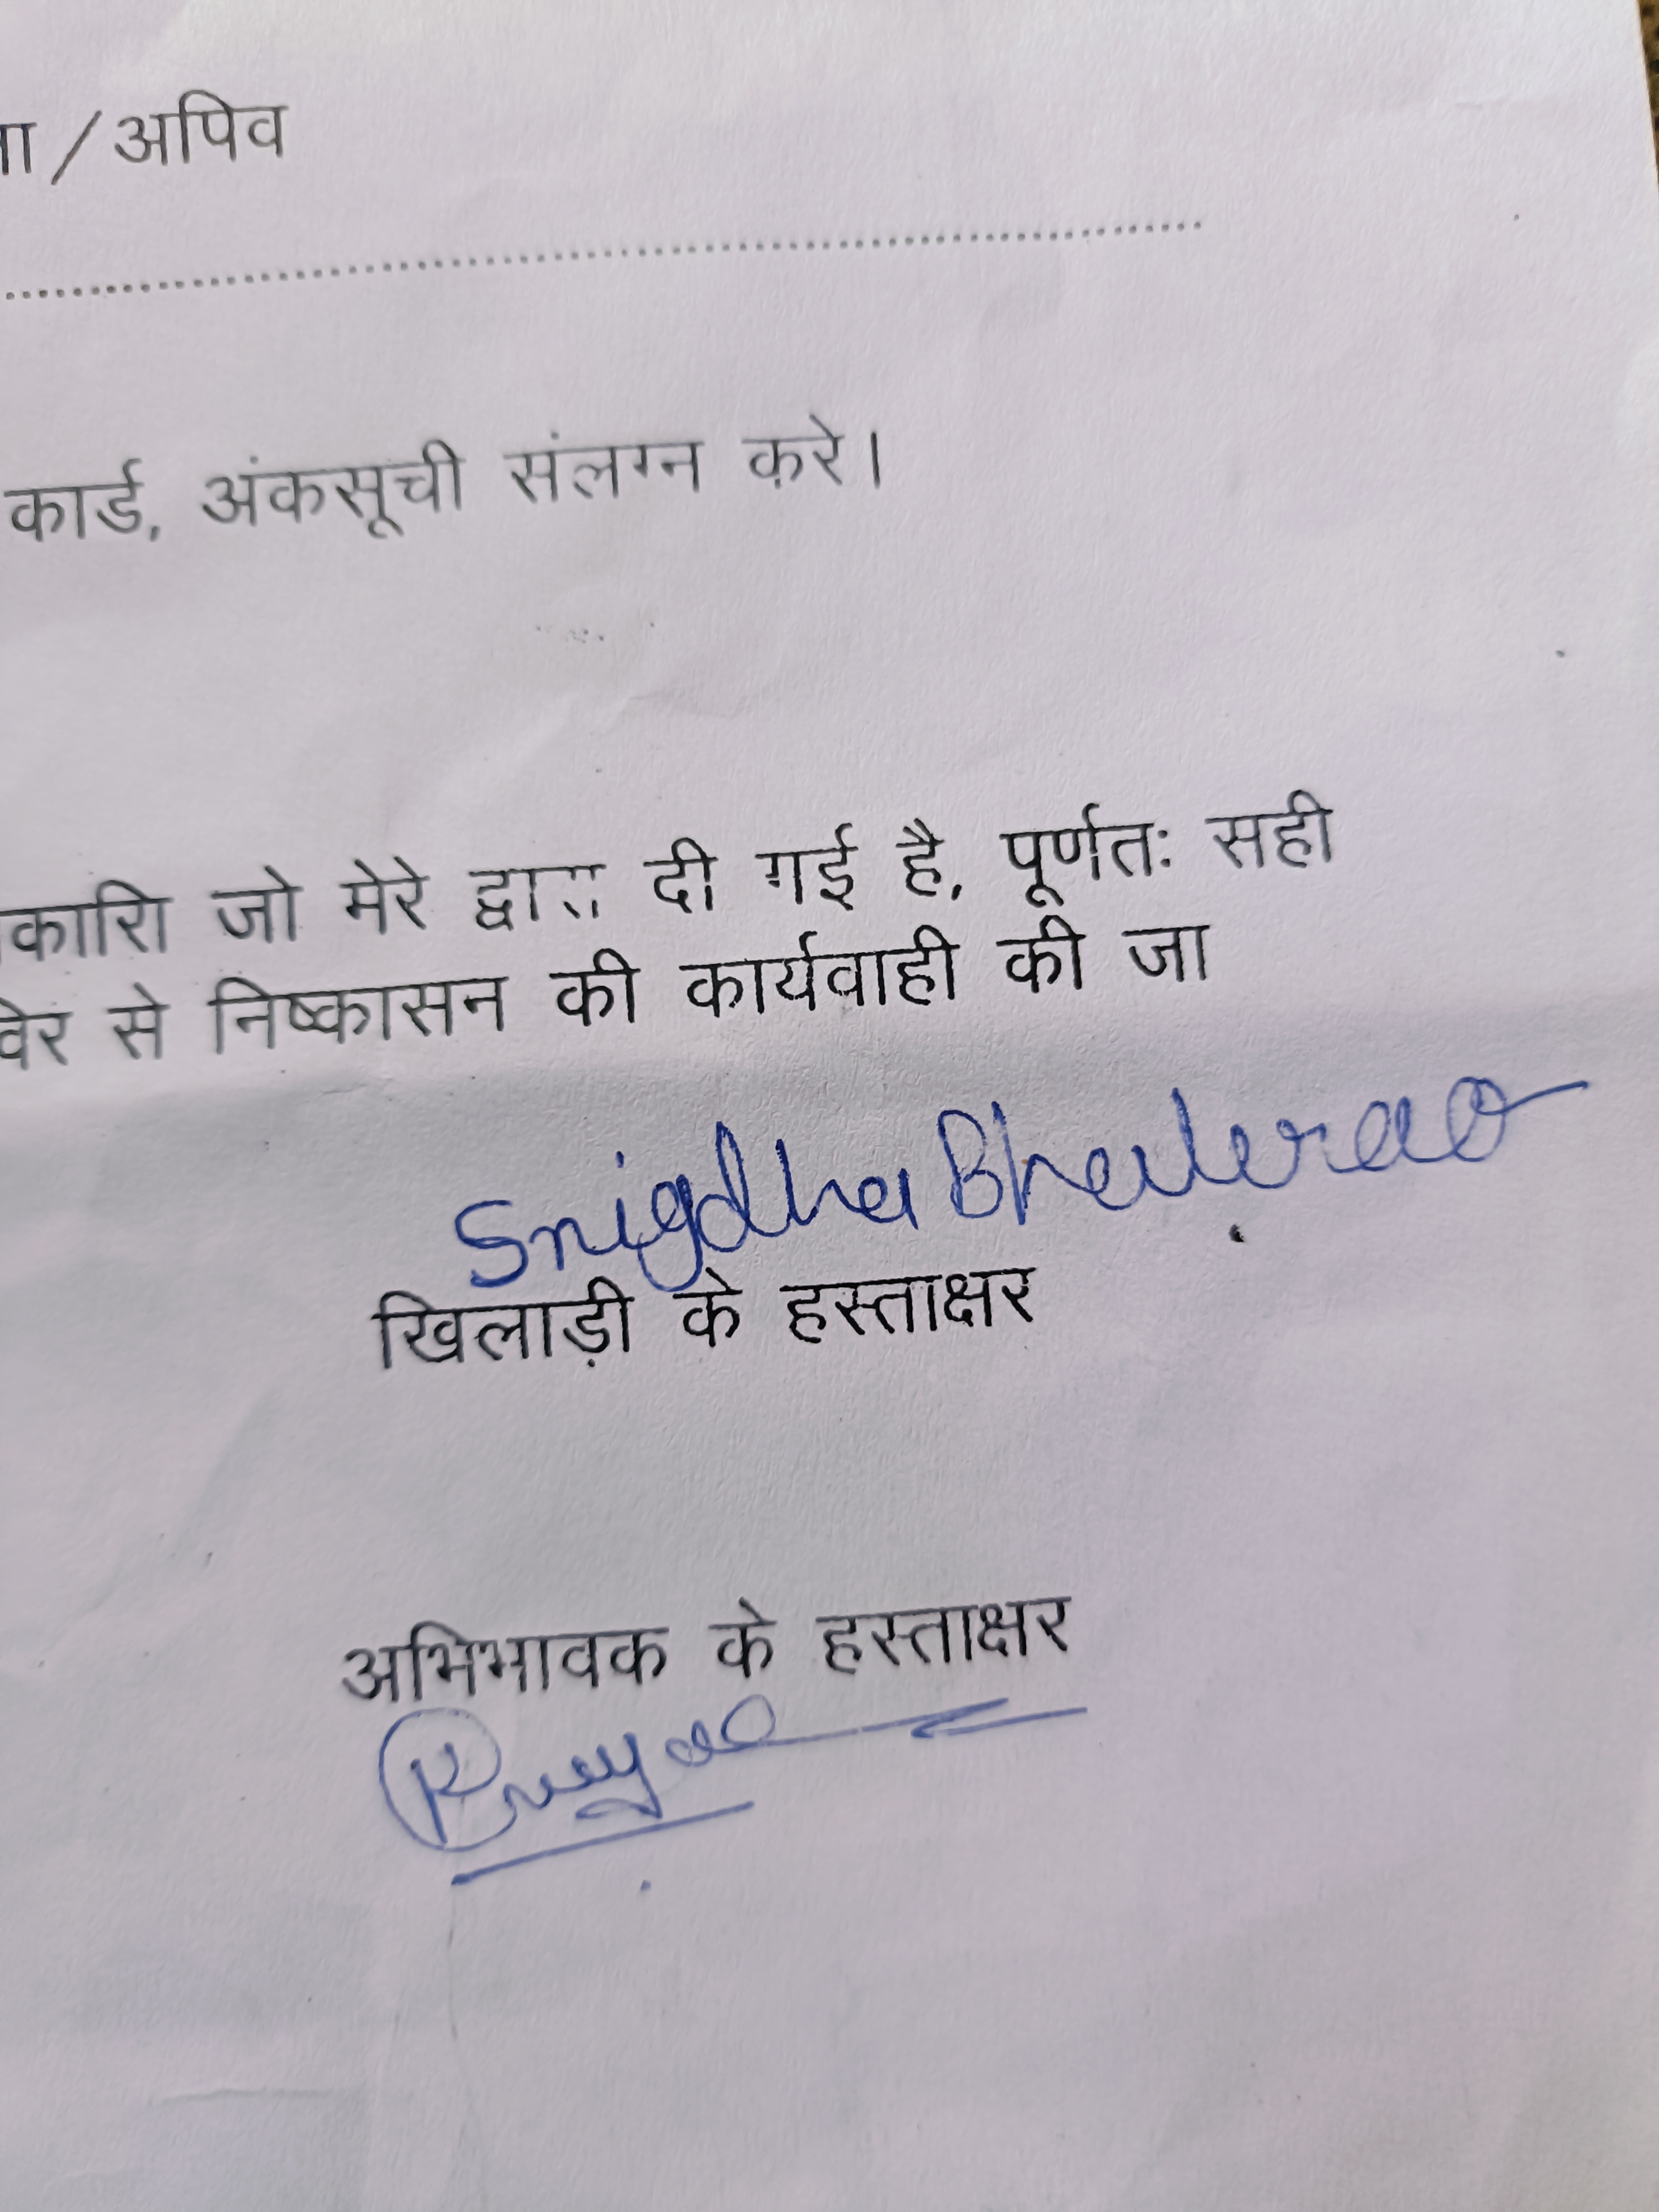 ा / अपिव
................................................................
कार्ड, अंकसूची संलग्न करे।
कारि जो मेरे द्वारा दी गई है, पूर्णतः सही
से निष्कासन की कार्यवाही की जा
Snigdha Bhalerao
खिलाड़ी के हस्ताक्षर
अभिभावक के हस्ताक्षर